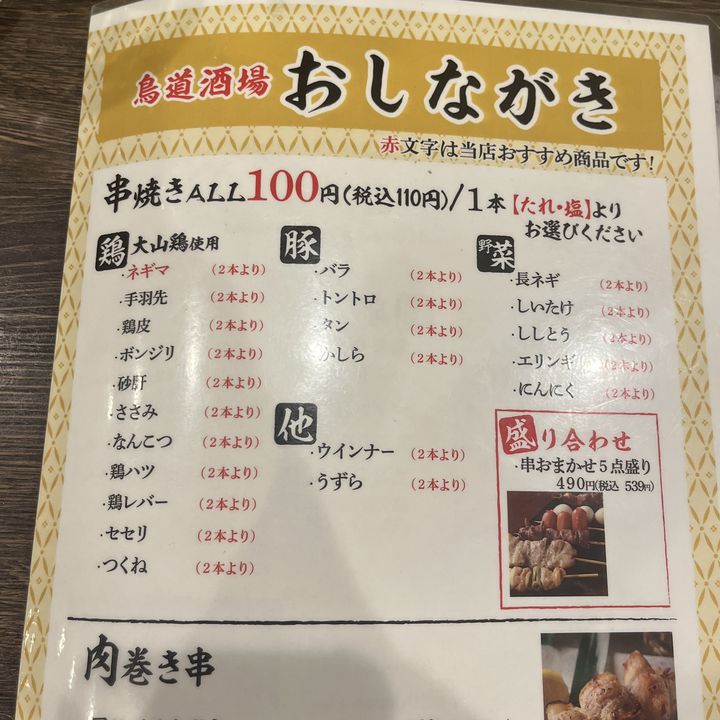 鳥道酒場 おしながき
赤文字は当店おすすめ商品です!
串焼きALL100円(税込110円)/1本【たれ・塩】より
お選びください
鶏 大山鶏使用
・ネギマ (2本より)
・手羽先 (2本より)
・鶏皮 (2本より)
・ボンジリ (2本より)
・砂肝 (2本より)
・ささみ (2本より)
・なんこつ (2本より)
・鶏ハツ (2本より)
・鶏レバー (2本より)
・セセリ (2本より)
・つくね (2本より)
豚
・バラ (2本より)
・トントロ (2本より)
・タン (2本より)
かしら (2本より)
他
・ウインナー (2本より)
・うずら (2本より)
野菜
・長ネギ (2本より)
・しいたけ (2本より)
・ししとう (2本より)
・エリンギ (2本より)
・にんにく (2本より)
盛り合わせ
・串おまかせ5点盛り
490円(税込 539円)
肉巻き串